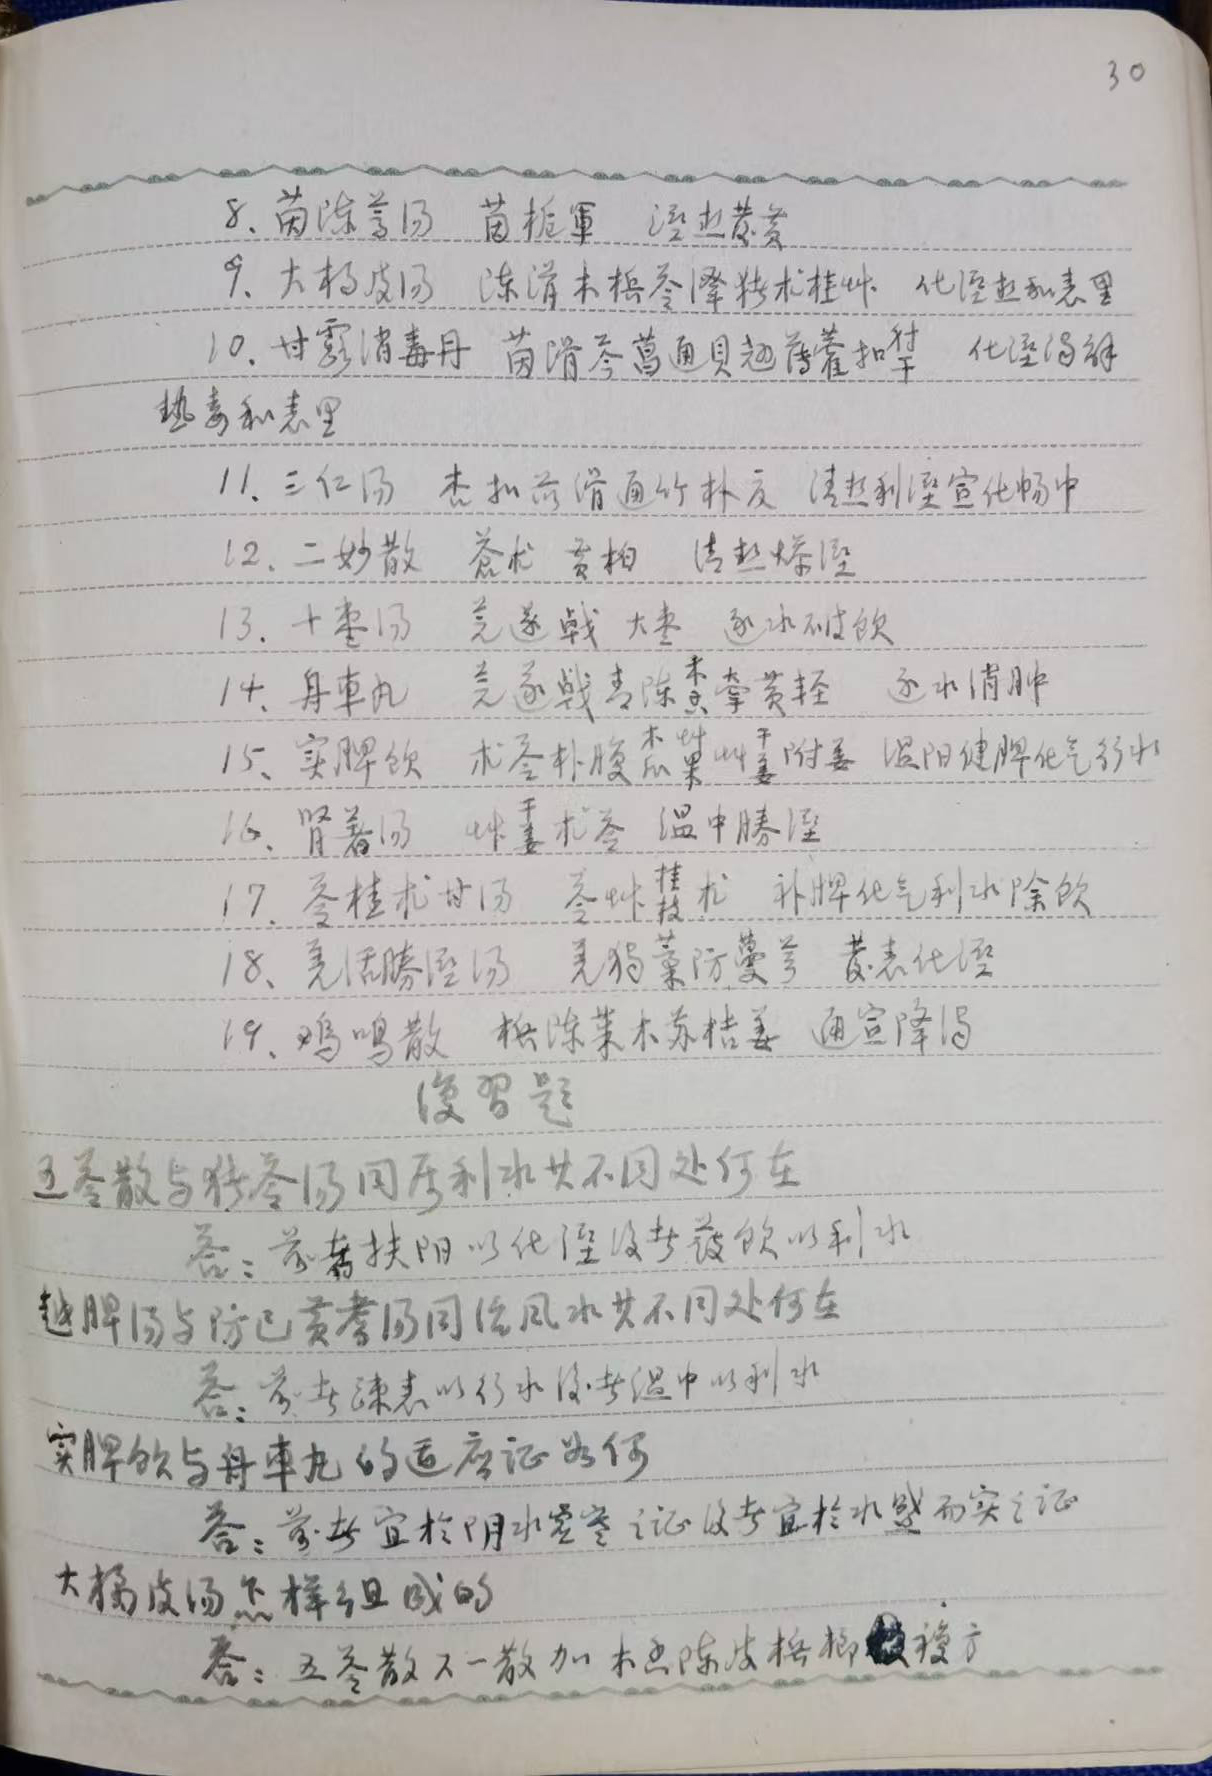 30
8、茵陈蒿汤 茵栀軍 溼热黄黄
9、大橘皮汤 陈滑木槟苓泽猪术桂艸 化溼热和表里
10、甘露消毒丹 茵滑芩菖通貝翘薄藿扣 射干 化溼浊解
热毒和表里
11、三仁汤 杏扣苡滑通竹朴夏 清热利溼宣化畅中
12、二妙散 蒼术 黄柏 清热燥溼
13、十枣汤 芫遂戟 大枣 逐水破饮
14、舟車丸 芫遂戟青陈木香牵黄轻 逐水消肿
15、实脾饮 术苓朴腹木瓜艸果艸干姜附姜 温阳健脾化气行水
16、腎著汤 艸干姜术苓 温中勝溼
17、苓桂术甘汤 苓艸桂枝术 补脾化气利水除饮
18、羌活勝溼汤 羌独藁防蔓芎 发表化溼
19、鸡鳴散 槟陈茱木苏桔姜 通宣降浊
復習題
五苓散与猪苓汤同属利水共不同处何在
答：前者扶阳以化溼後者蓤饮以利水
越脾汤与防已黄耆汤同治风水共不同处何在
答：前者疎表以行水後者温中以利水
实脾饮与舟車丸的适应证如何
答：前者宜於阴水虚寒之证後者宜於水盛而实之证
大橘皮汤怎样组成的
答：五苓散六一散加木香陈皮槟榔複方